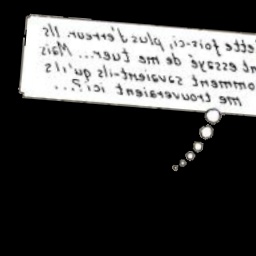 Cette fois-ci, plus d'erreur. Ils
ont essayé de me tuer... Mais
comment savaient-ils qu'ils
me trouveraient ici ?...